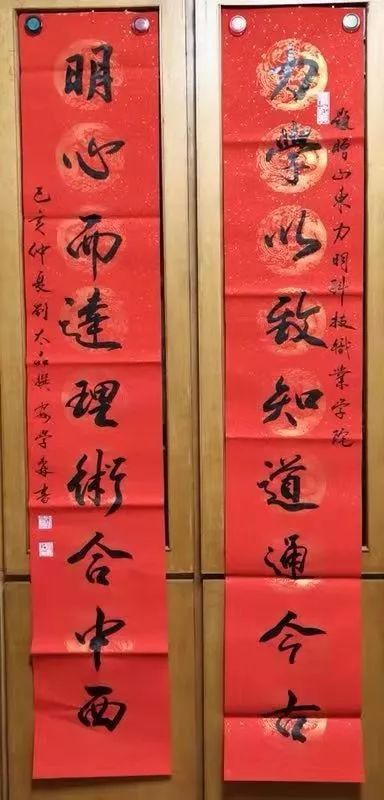 敬贈山東力明科技職業学院
力學以致知道通今古
明心而達理術合中西
己亥仲夏劉大品撰安学森書